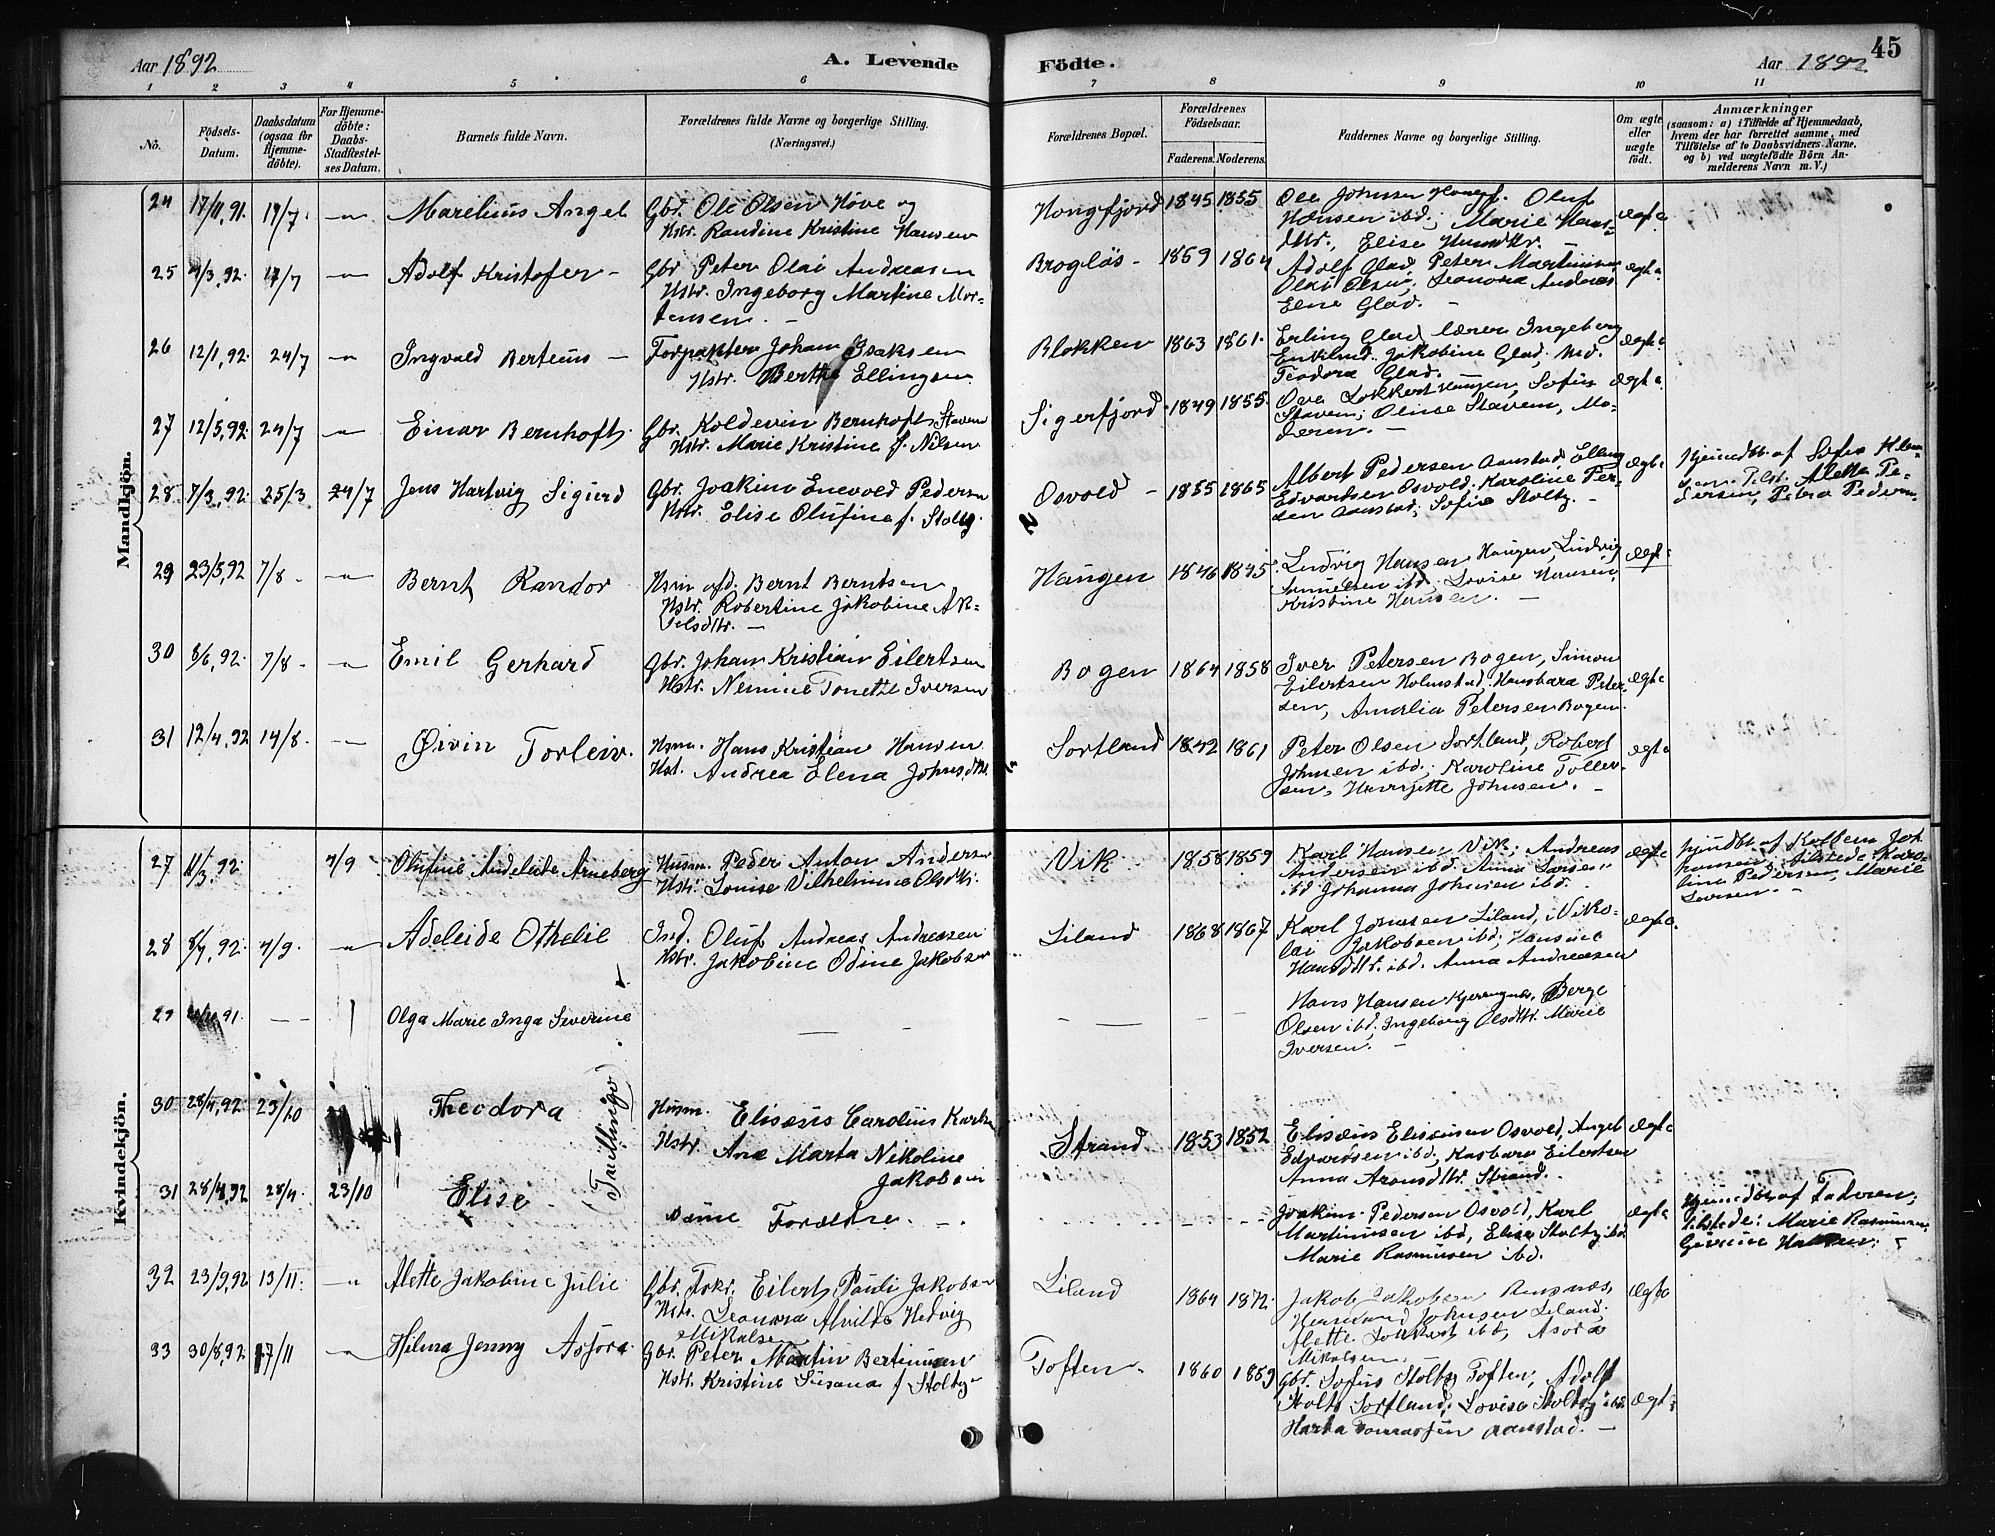 Aar 1892
A. Levende
Födte.
Aar 1892
45
1 2 3 4 5 6 7 8 9 10 11
No.
Födsels-
Datum.
Daabsdatum
(ogsaa for
Hjemme-
döbte).
For Hjemme-
döbte:
Daabs-
Stadfæstel-
ses Datum.
Barnets fulde Navn.
Forældrenes fulde Navne og borgerlige Stilling.
(Næringsvei.)
Forældrenes Bopæl.
Forældrenes
Födselsaar.
Faderens. Moderens.
Faddernes Navne og borgerlige Stilling.
Om ægte
eller
uægte
födt.
Anmærkninger
(saasom: a) i Tilfælde af Hjemmedaab,
hvem der har forrettet samme, med
Tilföielse af to Daabsvidners Navne,
og b) ved uægtefödte Börn An-
melderens Navn m. V.)
Mandkjön.
24 17/11,91. 17/7. -"- Marelius Angel Gbr. Ole Olsen Hove og
Hstr. Randine Kristine Hansen
Hongfjord 1845 1855 Ole Johnsen Hongf. Oluf
Hansen ibd.; Marie Hans-
dtr., Elise
ægte
25 4/3,92. 17/7 -"- Adolf Kristofer - Gbr Peter Olai Andreasen
Hstr. Ingeborg Martine Mor-
tensen. -
Brogløs - 1859 1864 Adolf Glad, Peter Martinsen
Olai Olsen, Leonora Andreas
Elne Glad. -
ægte
26 12/1,92. 24/7 -"- Ingvald Berteus - Forpakter Johan Isaksen
Hstr. Berthe Ellingsen
Blokken 1863 1861. Erling Glad, lærer Ingeberg
Jakobine Glad,
Teodora Glad.
ægte
27 12/5,92. 24/7 -"- Einar Bernhoft. Gbr. Koldevin Bernhoft Stavem
Hstr. Marie Kristine f. Nilsen
Sigerfjord. 1849 1855. Ove Lokkert Haugen, Sofus
Stavem; Oluse Stavem, Mo-
deren. -
ægte
28. 7/3,92. 25/3 24/7 Jens Hartvig Sigurd Gbr. Joakim Enevold Pedersen
Hstr. Elise Olufine f. Stoltz.
Osvold - 1855 1865 Albert Pedersen Aanstad, Elling
Edvartsen Osvold, Karoline Peder-
sen Aanstad; Sofie Stoltz. -
ægte
Hjemmedbt. af Sofus Klem-
Alette Pe-
dersen, Petra Pedersen.
29 23/5,92 7/8 - -"- Bernt Randor Hsm afd. Bernt Berntsen
Hstr. Robertine Jakobine Ak-
selsdtr. -
Haugen 1846 1845 Ludvig Hansen Haugen, Ludvig
ibd. Lovise Hansen,
Kristine Hansen. -
ægte
30 8/6,92. 7/8 - -"- Emil Gerhard Gbr. Johan Kristian Eilertsen
Hstr. Nemine Tonette Iversen
Bogen 1864 1858 Iver Petersen Bogen, Simon
Eilertsen Holmstad, Hansbara Peter-
sen, Amalia Petersen Bogen.
ægte
31 12/4,92 14/8. -"- Øivin Torleiv. Hsm. Hans Kristian Hansen
Hst. Andrea Elena Johnsdtr.
Sortland 1842 1861 Peter Olsen Sortland, Robert
Johnsen ibd.; Karoline Tollev-
sen, Henrijette Johnsen. -
ægte
Kvindekjön.
27 11/3,92. 4/9 Olufine Andeleide Arneberg Husm. Peder Anton Andersen
Hstr. Louise Vilhelmine Olsdtr.
Vik. 1858 1859 Karl Hansen Vik; Andreas
Andersen ibd. Anna Larsen
ibd Johanna Johnsen ibd.
ægte
hjmdbt. af Kolbein Joh-
hansen, Tilstede: Karo-
line Pedersen, Marie
Iversen. -
28 8/7,92. 4/9. -"- Adeleide Othelie Ind. Oluf Andreas Andreasen
Hstr. Jakobine Odine Jakobsen
Liland 1868 1867 Karl Jonasen Liland, Niko-
lai Jakobsen ibd; Hansine
Hansdtr. ibd. Anna Andreasen
ægte.
29 91. - - Olga Marie Inga Severine - -
- - - Hans Hansen Kjerringnes, Berge
Olsen ibd; Ingeborg Olsdtr. Marie
Iversen. -
30 28/4,92. 23/10 Theodora (Tvillinge) Husm. Elisæus Carolius Karls
Hstr. Ane Marta Nikoline
Jakobsen
Strand 1853 1852 Elisæus Elisæusen Osvold, Angel
Edvardsen ibd, Kasbara Eilertsen
Anna Aronsdtr. Strand.
ægte
31 28/4,92 28/4. 23/10 Elise. Samme Forældre. - -.
Joakim Pedersen Osvold, Karl
Martinussen ibd, Elise Stoltz ibd.
Marie Rasmussen ibd.
ægte
Hjemmedbt. af Faderen;
tilstede: Marie Rasmussen,
32 23/9,92 13/11. -"- Alette Jakobine Julie Gbr. Fskr. Eilert Pauli Jakobsen
Hstr. Leonora Alvilde Hedvig
Mikalsen
Liland 1864 1872. Jakob Jakobsen Rensnæs,
Johnsen Liland,
Alette Lokkert ibd, Asora
Mikalsen.
ægte
33 30/8,92 17/11 -"- Hilma Jenny Asfora Gbr. Peter Martin Bertinusen
Hstr. Kristine Susana f Stoltz -
Toften - 1860 1859 Gbr. Sofus Stoltz Toften, Adolf
Stoltz Sortland, Lovise Stoltz ibd.
Marta Tomassen Aanstad. -
ægte